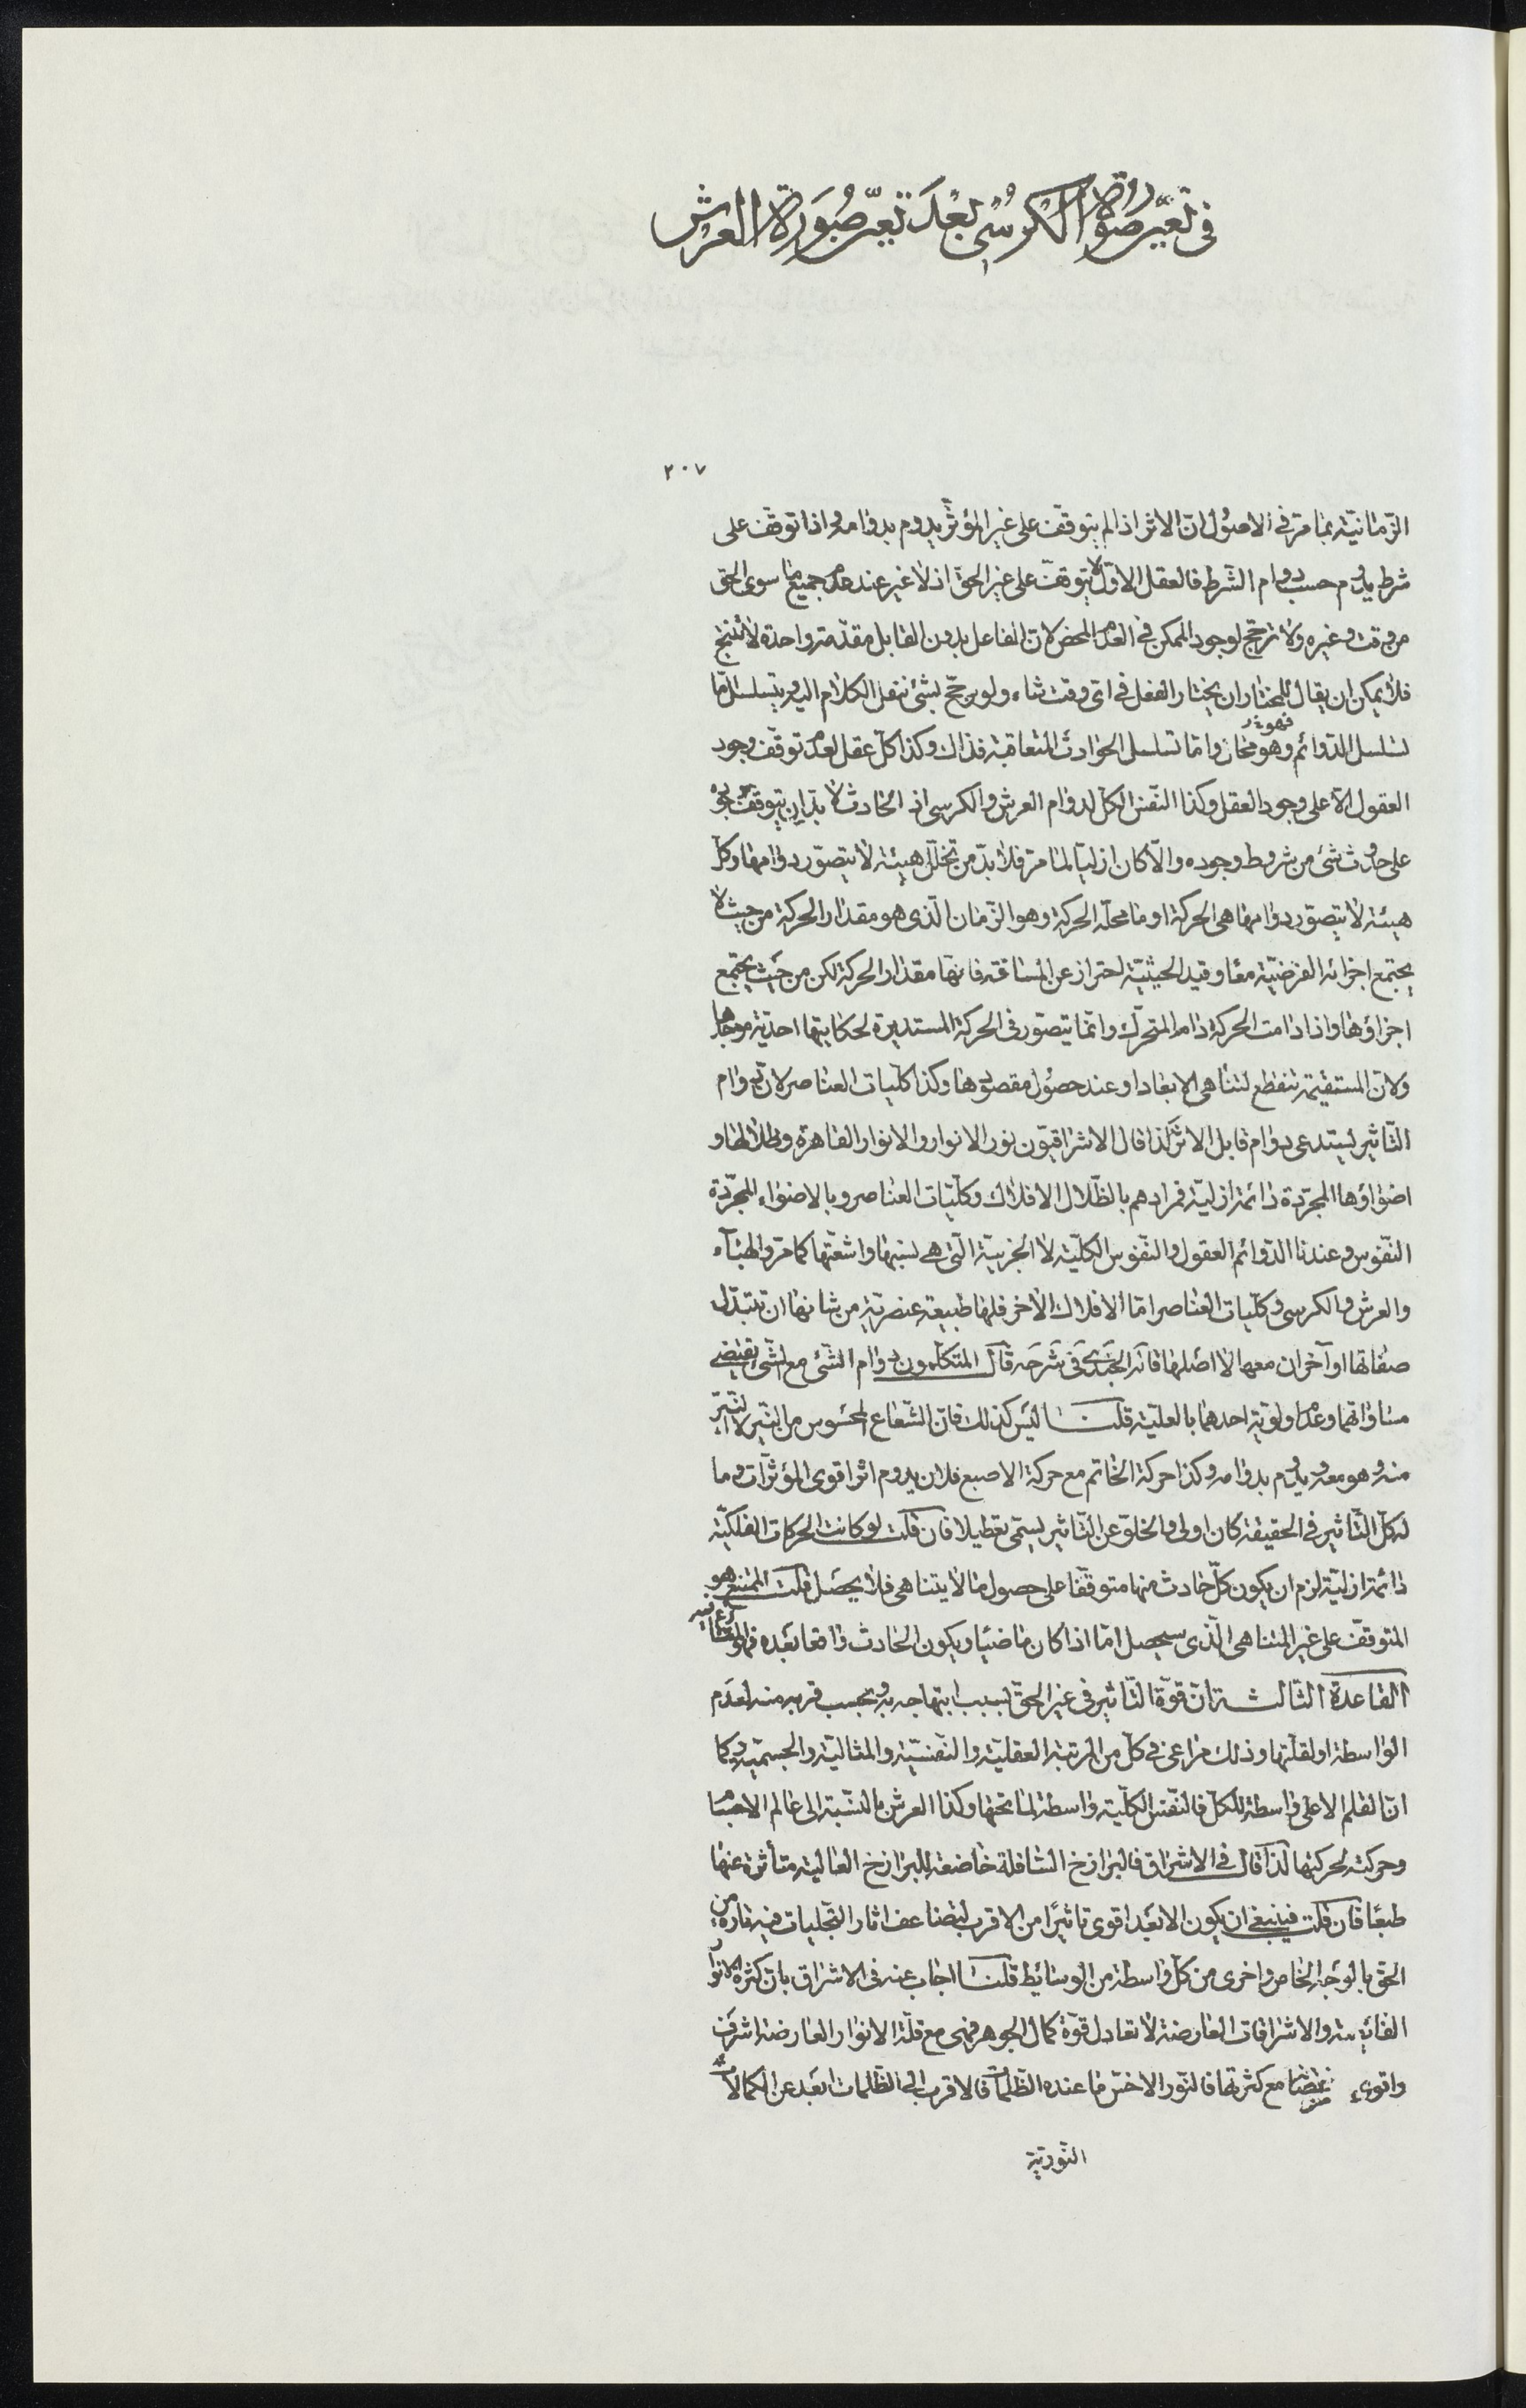 في تعيّن صورة الكرسي بعد تعيّن صورة العرش
٢٠٧
الزمانيّة بما مرّ في الاصول انّ الاثر اذا لم يتوقّف على غير المؤثّر يدوم بدوامه واذا توقّف على
شرط يدوم حسب دوام الشّرط فالعقل الاوّل لا يتوقّف على غير الحقّ اذ لا غير عند عدم جميع ما سوى الحق
من وقت وغيره ولا ترجّح لوجود الممكن في العدم المحض لانّ الفاعل بدون القابل مقدّمة واحدة لا تنتج
فلا يمكن ان يقال للمختار ان يختار الفعل في اىّ وقت شاء ولو يرجّح بشئ ننقل الكلام اليه ويتسلسل امّا
تسلسل الدّوائم وهو محال وامّا تسلسل الحوادث المتعاقبة فذاك وكذا كلّ عقل لعدم توقّف وجود
العقول الّا على وجود العقل وكذا النّفس الكل لدوام العرش والكرسى اذ الحادث لا بدّ ان يتوقّف وجوده
على حدوث شئ من شروط وجوده والّا كان ازليّا لما مرّ فلا بدّ من تخلّل هيئة لا يتصوّر دوامها وكلّ
هيئة لا يتصوّر دوامها هى الحركة او ما محلّه الحركة وهو الزّمان الّذى هو مقدار الحركة من حيث لا
يجتمع اجزائه الفرضيّة معا وقيد الحيثيّة احتراز عن المسافة فانّها مقدار الحركة لكن من حيث يجتمع
اجزاؤها واذا دامت الحركة دام المتحرّك وانّما يتصوّر فى الحركة المستديرة لحكايتها احديّة موجدها
ولانّ المستقيمة تنقطع لتناهى الابعاد او عند حصول مقصودها وكذا كلّيات العناصر لانّ دوام
التّاثير يستدعى دوام قابل الاثر لذا قال الاشراقيّون نور الانوار والانوار القاهرة وظلالها و
اضواؤها المجرّدة دائمة ازليّة فمرادهم بالظّلال الافلاك وكلّيّات العناصر وبالاضواء المجرّدة
النّفوس وعندنا الدّوائم العقول والنّفوس الكلّيّة لا الجزئيّة الّتى هى نسبها واشعّتها كما مرّ والهباء
والعرش والكرسى وكلّيات العناصر امّا الافلاك الاخر فلها طبيعة عنصريّة من شانها ان تتبدّل
صفاتها او آخران معها لا اصلها قاله الجندى فى شرحه قال المتكلّمون دوام الشّئ مع الشّئ يقتضى
مساواتهما وعدم اولويّة احدهما بالعلّيّة قلنا ليس كذلك فانّ الشّعاع المحسوس من النّيّر لا النّيّر
منه وهو معه ويدوم بدوامه وكذا حركة الخاتم مع حركة الاصبع فلان يدوم اثر اقوى المؤثّرات وما
له كلّ التّاثير فى الحقيقة كان اولى والخلوّ عن التّاثير يسمّى تعطيلا فان قلت لو كانت الحركات الفلكيّة
دائمة ازليّة لزم ان يكون كلّ حادث منها متوقّفا على حصول ما لا يتناهى فلا يحصل قلت الممتنع هو
المتوقّف على غير المتناهى الّذى سيحصل امّا اذا كان ماضيا ويكون الحادث واقعا بعده
القاعدة الثّالثة انّ قوّة التّاثير فى غير الحقّ بسبب ابتهاجه به وبحسب قربه منه لعدم
الواسطة او لقلّتها وذلك مراعى فى كلّ من المرتبة العقليّة والنّفسيّة والمثاليّة والجسميّة وكما
انّ القلم الاعلى واسطة للكلّ فالنّفس الكلّيّة واسطة لما تحتها وكذا العرش بالنّسبة الى عالم الاجسام
وحركته لحركتها لذا قال فى الاشراق فالبرازخ السّافلة خاضعة للبرازخ العالية متأثرة عنها
طبعا فان قلت فينبغى ان يكون الابعد اقوى تاثيرا من الاقرب لتضاعف اثار التّجليات فيه تارة من
الحق بالوجه الخاص واخرى من كلّ واسطة من الوسائط قلنا اجاب عنه فى الاشراق بانّ كثرة الانوار
الفائضة والاشراقات العارضة لا تعادل قوّة كمال الجوهر فهى مع قلّة الانوار العارضة اشرف
واقوى مع كثرتها فالنّور الاخسّ ما عنده الظّلمات فالاقرب الى الظّلمات ابعد عن الكمالات
النّوريّة